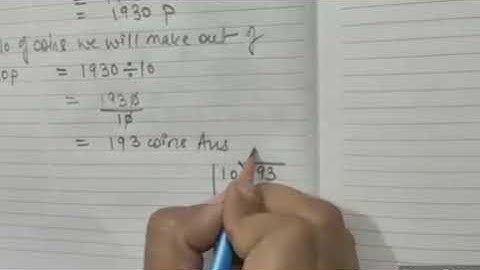 =
= 1930 P
of coins we will make out of
0p = 1930÷10
= 1930
10
= 193 coins Ans
10 93